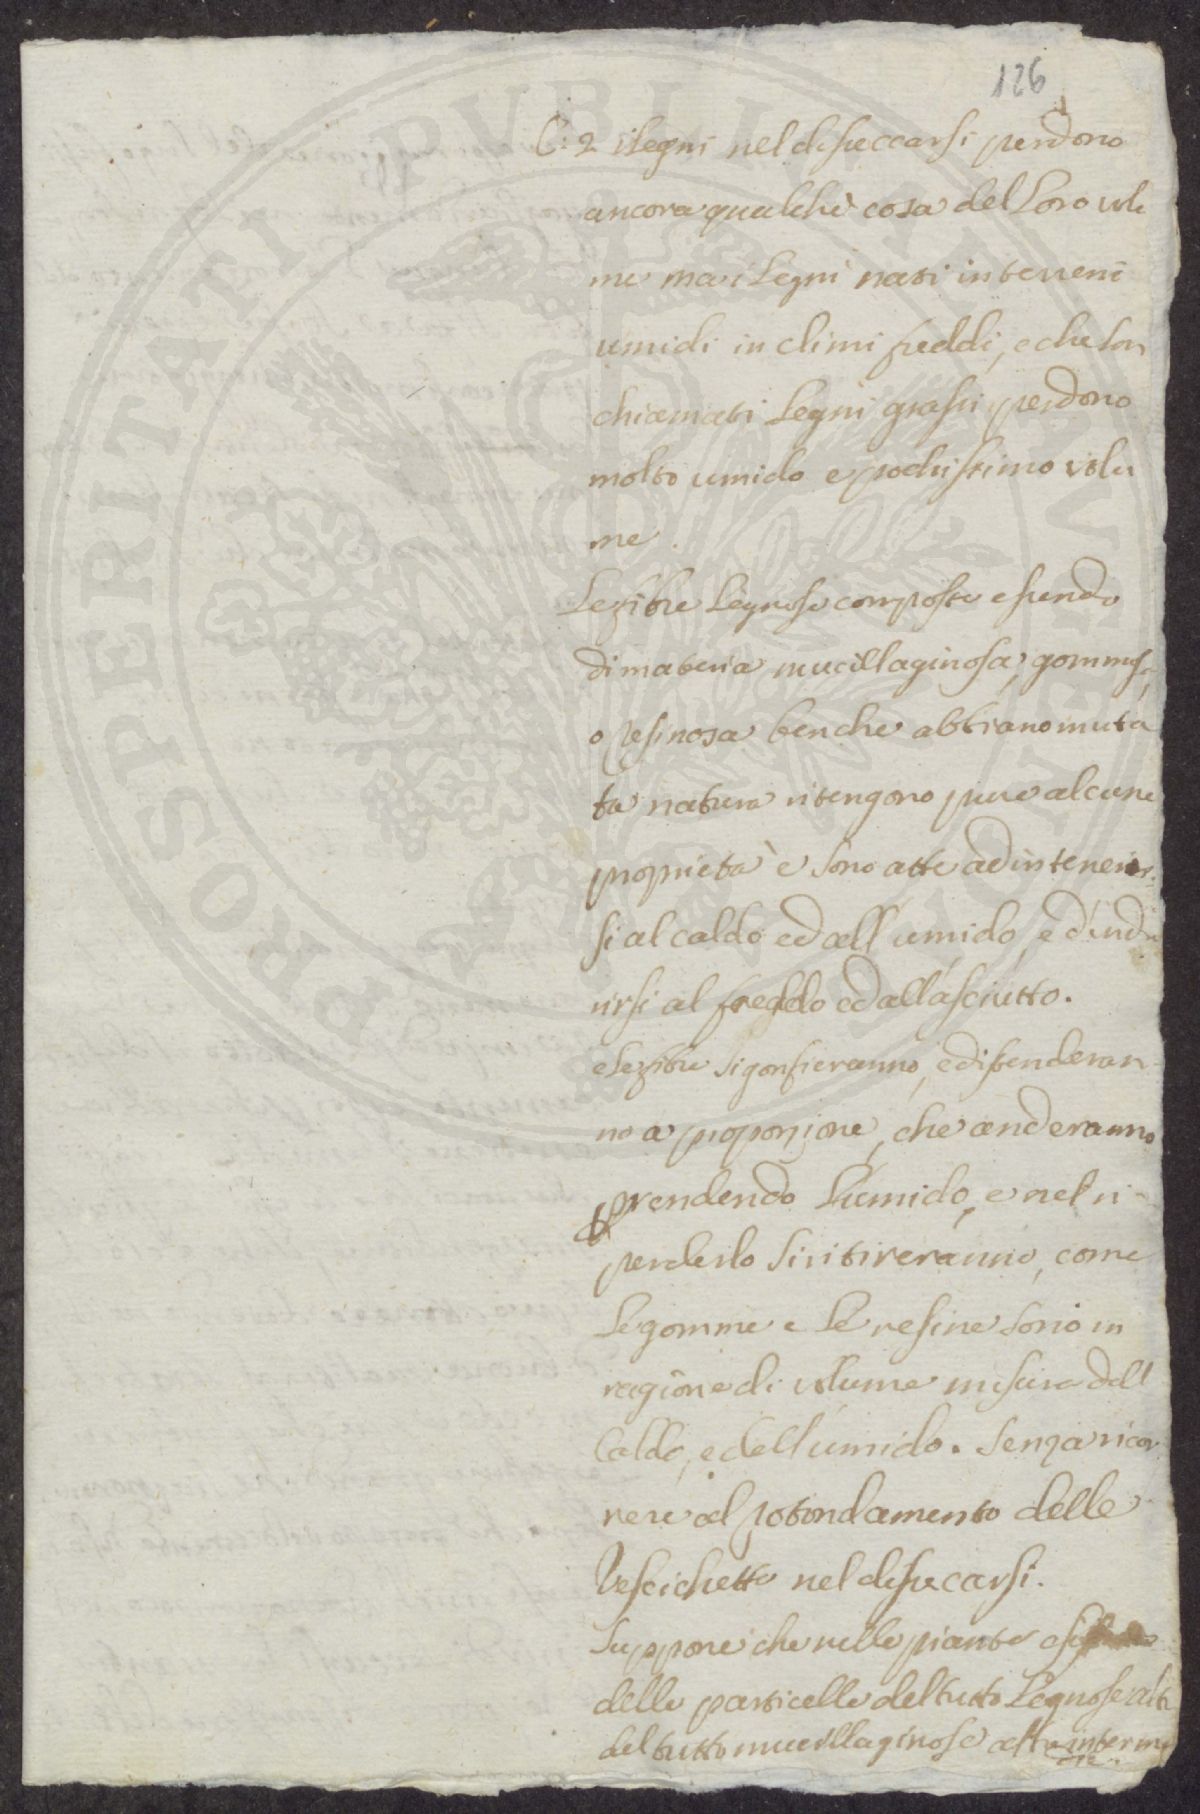 126
C: 2 i Legni nel disseccarsi perdono
ancora qualche cosa del Loro volu
me ma i Legni nati in terreni
umidi in climi freddi, e che son
chiamati Legni grassi perdono
molto umido e pochissimo volu
me.
Le fibre Legnose composte essendo
di materia mucillaginosa, gommosa,
o resinosa benche abbiano muta
ta natura ritengono pure alcune
proprietà e sono atte ad intenerir
si al caldo ed all'umido, e d'indu
rirsi al freddo ed all'asciutto.
e le fibre si gonfieranno, e distenderan
no a proporzione, che anderanno
prendendo L'umido, e nel ri-
perderlo si ritireranno, come
Le gomme e Le resine sono in
ragione di volume misura del
Caldo, e dell'umido. Senza ricor
rere al rotondamento delle
Vescichette nel disseccarsi.
Suppone che nelle piante
delle particelle del tutto Legnose altre
del tutto mucillaginose altre interme
die.
PROSPERITATI PVBLICAE